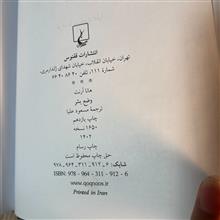 انتشارات ققنوس
تهران، خیابان انقلاب، خیابان شهدای ژاندارمری،
شمارهٔ ۱۱۱، تلفن ۴۰ ۸۶ ۴۰ ۶۶
* * *
هانا آرنت
وضع بشر
ترجمهٔ مسعود علیا
چاپ یازدهم
۱۶۵۰ نسخه
۱۴۰۲
چاپ رسام
حق چاپ محفوظ است
شابک: ۶ ـ ۹۱۲ ـ ۳۱۱ ـ ۹۶۴ ـ ۹۷۸
ISBN: 978 - 964 - 311 - 912 - 6
www.qoqnoos.ir
Printed in Iran